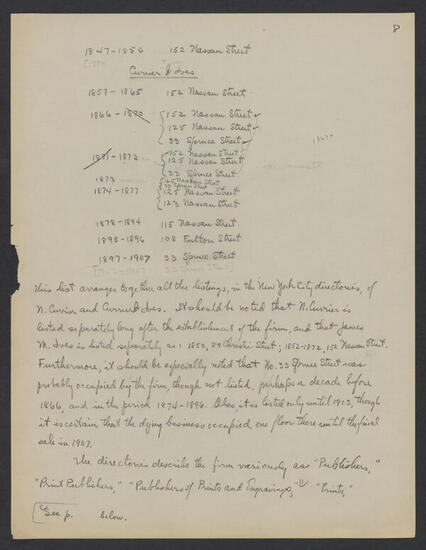 8
1847-1856 152 Nassau Street
Currier & Ives
1857-1865 152 Nassau Street
1866-1870 152 Nassau Street
125 Nassau Street
33 Spruce Street
1871-1872 152 Nassau Street
125 Nassau Street
33 Spruce Street
1873 125 Nassau Street
33 Spruce Street
1874-1877 125 Nassau Street
123 Nassau Street
1878-1894 115 Nassau Street
1895-1896 108 Fulton Street
1897-1907 33 Spruce Street
This list arranges together all the listings, in the New York City directories, of
N. Currier and Currier & Ives. It should be noted that N. Currier is
listed separately long after the establishment of the firm, and that James
M. Ives is listed separately as: 1850, Christie Street; 1852-1872, 152 Nassau Street.
Furthermore, it should be especially noted that No. 33 Spruce Street was
probably occupied by the firm, though not listed, perhaps a decade before
1866, and in the period 1874-1896. Also, it is listed only until 1903, though
it is certain that the dying business occupied one floor there until the final
sale in 1907.
The directories describe the firm variously as "Publishers,"
"Print Publishers," "Publishers of Prints and Engravings," "Prints,"
See p. below.